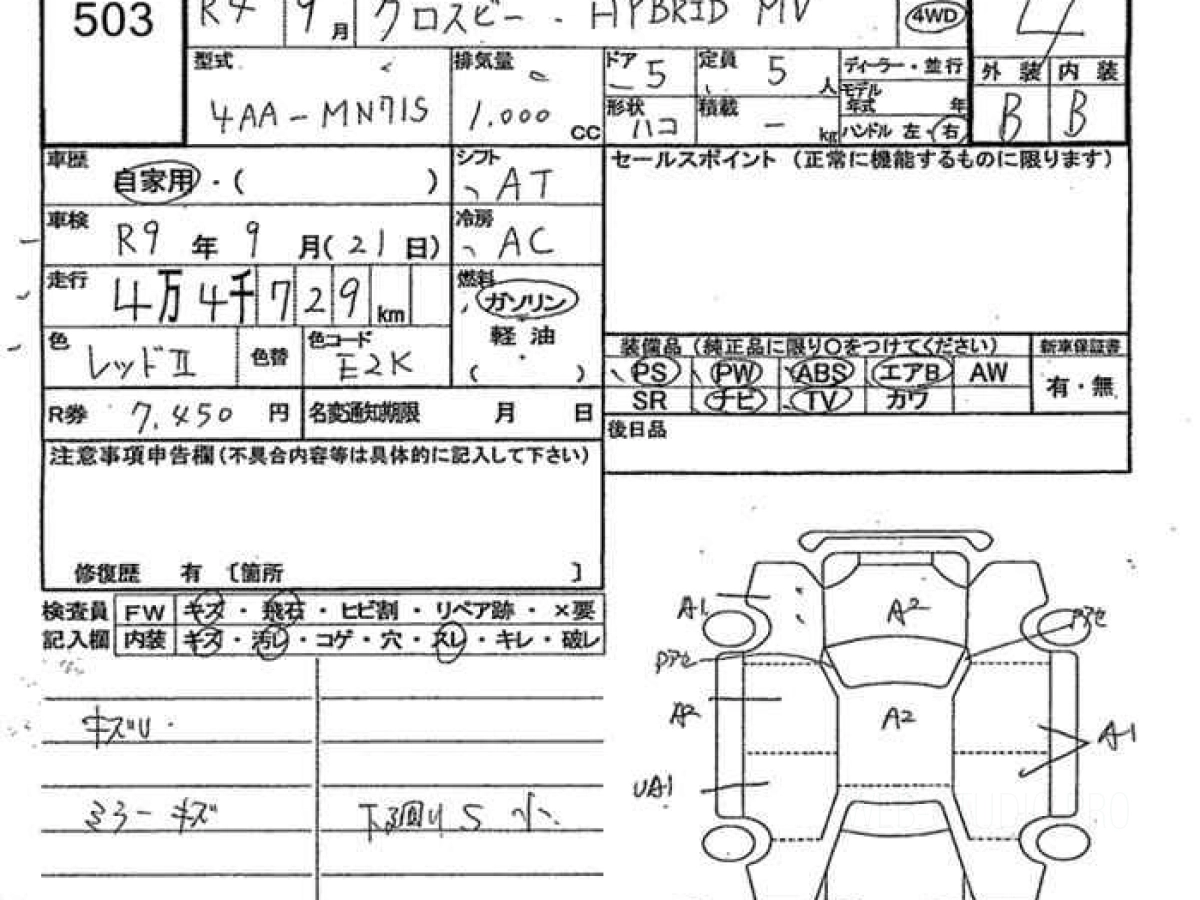 503 R4 9月 クロスビー . HYBRID MV 4WD 4
型式 排気量 ドア 5 定員 5 人 ディーラー・並行 外装 内装
4AA-MN71S 1.000 CC 形状 ハコ 積載 - kg モデル年式 年 B B
ハンドル 左・右
車歴 自家用・( ) シフト AT セールスポイント(正常に機能するものに限ります)
車検 R9 年 9 月(21日) 冷房 AC
走行 4万4千729km 燃料 ガソリン
軽油
( )
色 レッドII 色替 色コード E2K
装備品(純正品に限り○をつけてください) 新車保証書
PS PW ABS エアB AW 有・無
SR ナビ TV カワ
R券 7,450 円 名変通知期限 月 日
後日品
注意事項申告欄(不具合内容等は具体的に記入して下さい)
修復歴 有 〔箇所 〕
検査員 FW キズ・飛石・ヒビ割・リペア跡・×要
記入欄 内装 キズ・汚レ・コゲ・穴・スレ・キレ・破レ
キズU
ミラーキズ 下廻りS小
A1 A2 Pアセ
Pアセ
A2 A2 A1
UA1